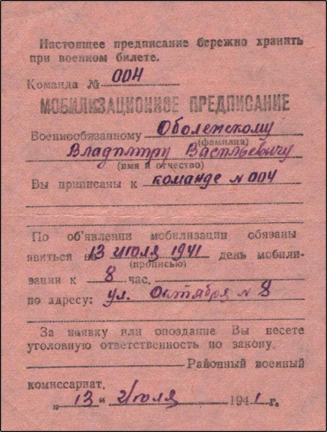 Настоящее предписание бережно хранить
при военном билете.
Команда № 004
МОБИЛИЗАЦИОННОЕ ПРЕДПИСАНИЕ
Военнообязанному Оболенскому
(фамилия)
Владимиру Васильевичу
(имя и отчество)
Вы приписаны к команде № 004
По об'явлении мобилизации обязаны
явиться на 13 июля 1941 день мобили-
(прописью)
зации к 8 час.
по адресу: ул. Октября № 8
За неявку или опоздание Вы несете
уголовную ответственность по закону.
Районный военный
комиссариат.
„ 13 " Июля 1941 г.